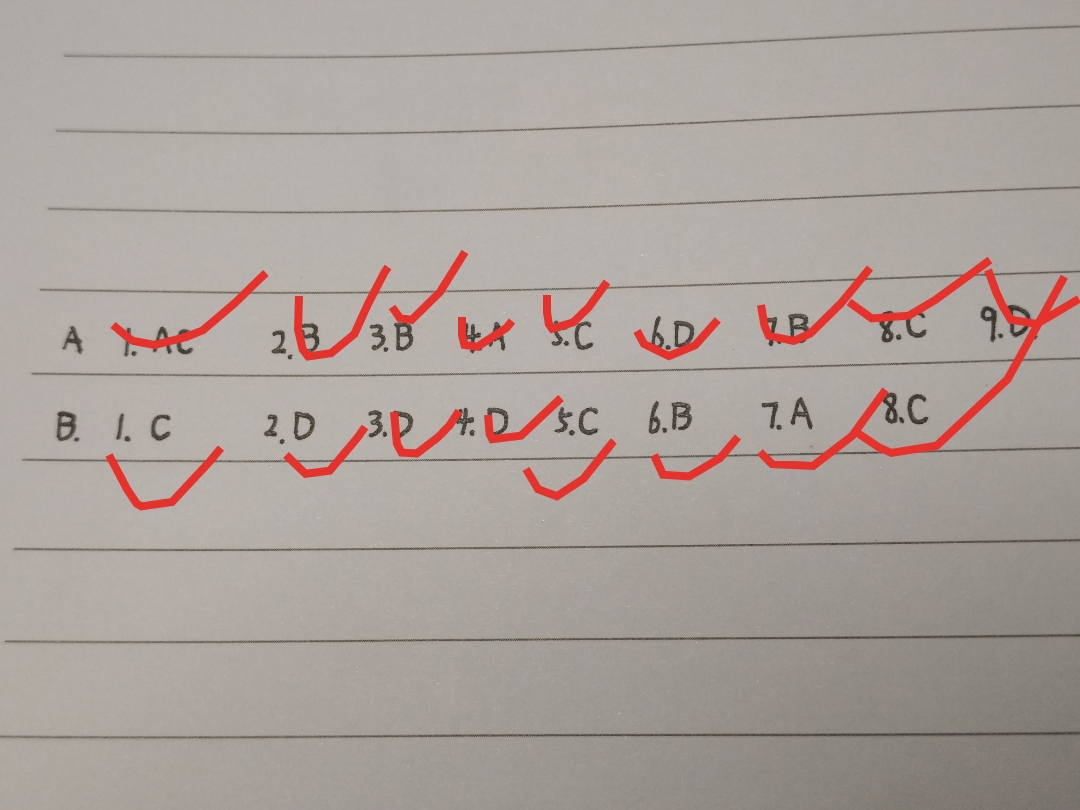 A 1. AC 2. B 3. B 4. A 5. C 6. D 7. B 8. C 9. D
B. 1. C 2. D 3. D 4. D 5. C 6. B 7. A 8. C